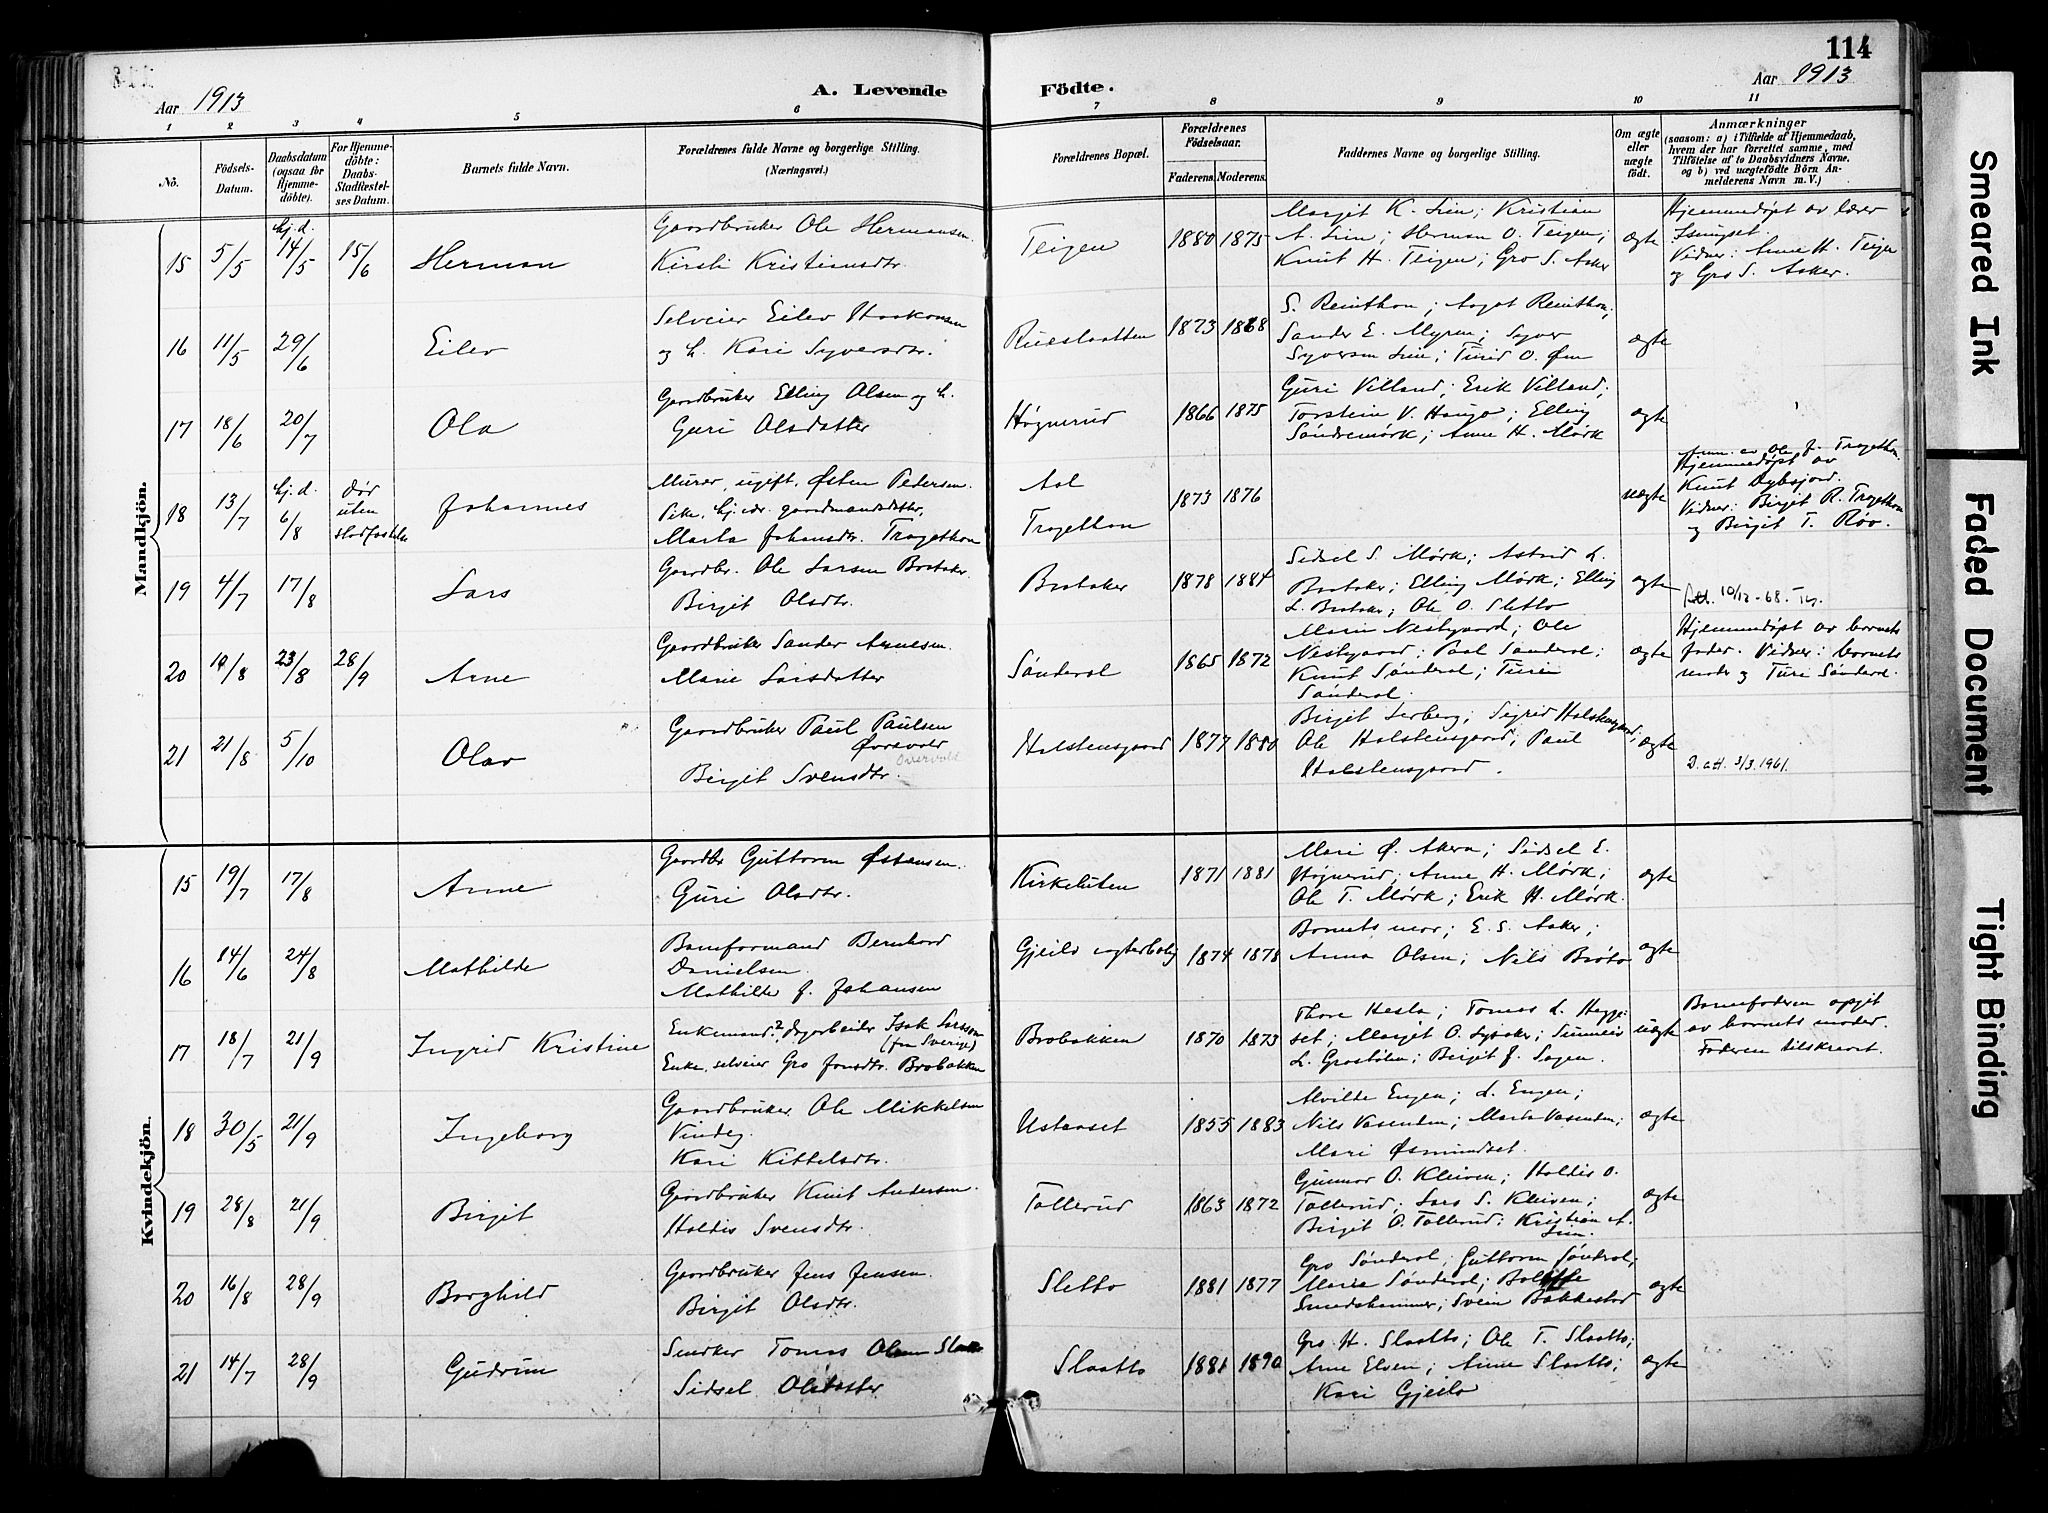 114
Aar 1913
A. Levende
Födte.
Aar 1913
1 2 3 4 5 6 7 8 9 10 11
No.
Födsels-Datum.
Daabsdatum (ogsaa for Hjemmedöbte).
For Hjemmedöbte: Daabs-Stadfæstelses Datum.
Barnets fulde Navn.
Forældrenes fulde Navne og borgerlige Stilling. (Næringsvei.)
Forældrenes Bopæl.
Forældrenes Födselsaar.
Faderens. Moderens.
Faddernes Navne og borgerlige Stilling.
Om ægte eller uægte födt.
Anmærkninger
(saasom: a) i Tilfælde af Hjemmedaab, hvem der har forrettet samme, med Tilföielse af to Daabsvidners Navne, og b) ved uægtefödte Börn Anmelderens Navn m. V.)
Mandkjön.
15 5/5 hj.d. 14/5 15/6 Herman
Gaardbruker Ole Hermansen
Kirsti Kristiansdtr.
Teigen 1880 1875
Margit K. Lien; Kristian
A. Lien; Herman O. Teigen;
Knut H. Teigen; Gro S. Aaker
ægte
Hjemmedøpt av lærer
Vidner: Anne H. Teigen
og Gro S. Aaker.
16 11/5 29/6 Eilev
Selveier Eilev Haakonsen
og h. Kari Syversdtr.
Rueslaatten 1873 1868
S. Reinthon; Aagot Reinthon;
Sander E. Myren; Syver
Syversen Lien; Turid O. Øen
ægte
17 18/6 20/7 Ola
Gaardbruker Elling Olsen og h.
Guri Olsdatter
Høgnerud 1866 1875
Guri Villand; Erik Villand;
Torstein V. Haugo; Elling
Søndremørk; Anne H. Mørk
ægte
18 13/7 hj.d. 6/8 dør uten stadfæstelse Johannes
Murer, ugift, Østen Pedersen
Pike, hj.vær. gaardmandsdatter,
Marta Johansdtr. Tragethon
Aal
Tragethon 1873 1876
uægte
Anm. av Ole J. Tragethon.
Hjemmedøpt av
Knut Dybsjord.
Vidner: Birgit R. Tragethon
og Birgit T. Røo.
19 4/7 17/8 Lars
Gaardbr. Ole Larsen Brataker
Birgit Olsdtr.
Brataker 1878 1884
Sidsel S. Mørk; Astrid L.
Brataker; Elling Mørk; Elling
L. Brataker; Ole O. Sletto
ægte
Att. 10/12-68.
20 14/8 23/8 28/9 Arne
Gaardbruker Sander Arnesen
Marie Larsdatter
Sønderal 1865 1872
Marie Nestegaard; Ole
Nestegaard; Paal Sønderal;
Knut Sønderal; Turi
Sønderal.
ægte
Hjemmedøpt av barnets
fader. Vidner: barnets
moder og Turi Sønderal.
21 21/8 5/10 Olav
Gaardbruker Paul Paulsen
Øvrevold
Birgit Svensdtr.
Holstensgaard 1877 1880
Birgit Lerberg; Sigrid Holstensgaard;
Ole Holstensgaard; Paul
Holstensgaard.
ægte
D. att. 3/3.1961.
Kvindekjön.
15 19/7 17/8 Anne
Gaardbr. Guttorm Østensen
Guri Olsdtr.
Kirkeluten 1871 1881
Mari Ø. Akra; Sidsel E.
Høgnerud; Anne H. Mørk;
Ole T. Mørk; Erik H. Mørk.
ægte
16 14/6 24/8 Mathilde
Baneformand Bernhard
Danielsen
Mathilde J. Johansen
Gjeilo vogterbolig 1874 1878
Barnets mor; E. S. Aaker;
Anna Olsen; Nils Bråto
ægte
17 18/7 21/9 Ingrid Kristine
Enkemand?, dagarbeider Isak Larsson
(fra Sverige)
Enke, selveier Gro Jonsdtr. Brobakken
Brobakken 1870 1873
Thora Hesla; Tomas L. Hegge-
set; Margit O. Lybaker; Sunniva
L. Grostølen; Birgit J. Sagen.
uægte
Barnefaderen opgit
av barnets moder.
Faderen tilskrevet.
18 30/5 21/9 Ingeborg
Gaardbruker Ole Mikkelsen
Vindeg
Kari Kittelsdtr.
Ustaoset 1855 1883
Alvilde Engen; L. Engen;
Nils Vasenden; Marta Vasenden;
Mari Øsmundset.
ægte
19 28/8 21/9 Birgit
Gaardbruker Knut Andersen
Haldis Svensdtr.
Tollerud 1863 1872
Gunnar O. Kleiven; Haldis O.
Tollerud; Lars S. Kleiven;
Birgit O. Tollerud; Kristian A.
Lien.
ægte
20 16/8 28/9 Borghild
Gaardbruker Jens Jensen
Birgit Olsdtr.
Sletto 1881 1877
Gro Sønderal; Guttorm Sønderal;
Maria Sønderal;
Smedshammer; Svein Bakkestad
ægte
21 14/7 28/9 Gudrun
Snekker Tomas Olsen Slaatto
Sidsel Olsdatter
Slaatto 1881 1890
Gro H. Slaatto; Ole T. Slaatto;
Arne Elsen; Anne Slaatto;
Kari Gjeilo
ægte
Smeared Ink
Faded Document
Tight Binding